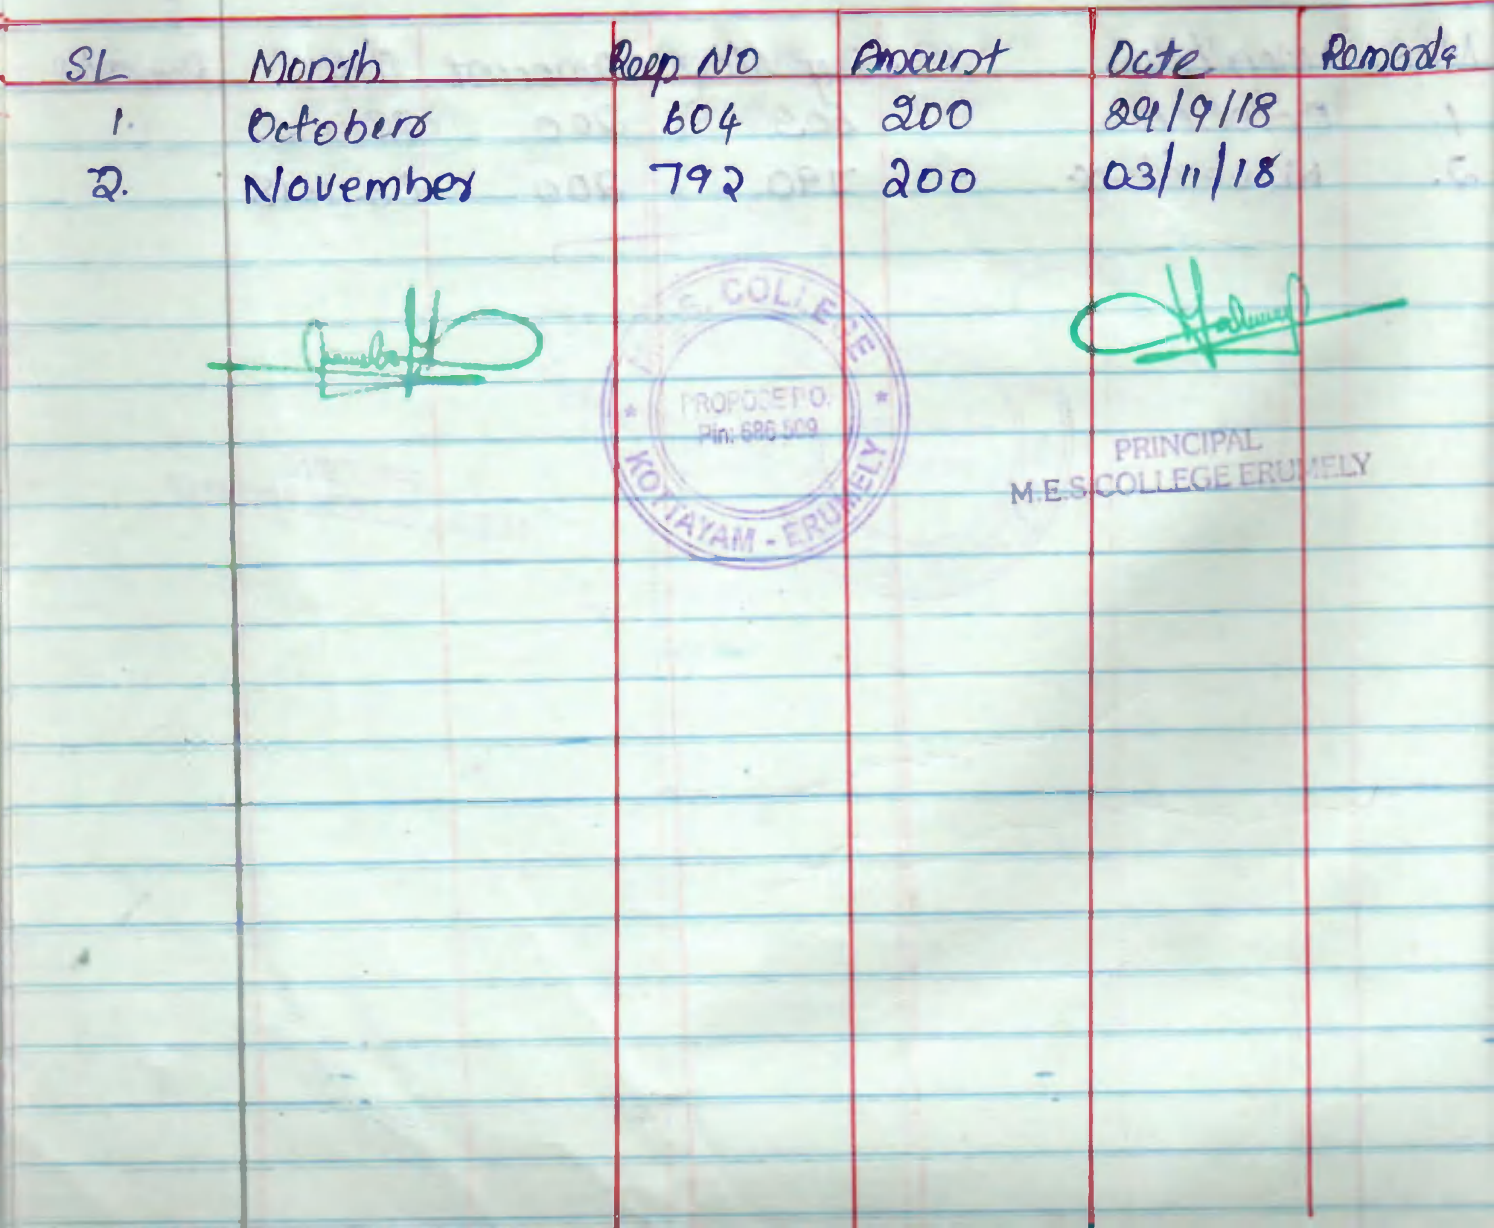 SL Month Recp NO Amount Date Remarks
1. October 604 200 29/9/18
2. November 792 200 03/11/18
M.E.S. COLLEGE
PROPOSE P.O.
Pin: 686 509
KOTTAYAM - ERUMELY
PRINCIPAL
M.E.S COLLEGE ERUMELY